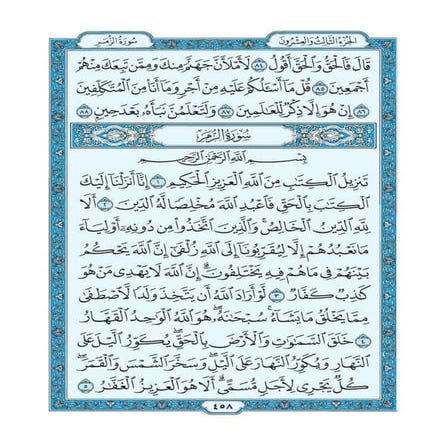 سُورَةُ الزُّمَرِ الجُزْءُ الثَّالِثُ وَالعِشْرُونَ
قَالَ فَالْحَقُّ وَالْحَقَّ أَقُولُ ٨٤ لَأَمْلَأَنَّ جَهَنَّمَ مِنكَ وَمِمَّن تَبِعَكَ مِنْهُمْ
أَجْمَعِينَ ٨٥ قُلْ مَا أَسْأَلُكُمْ عَلَيْهِ مِنْ أَجْرٍ وَمَا أَنَا مِنَ الْمُتَكَلِّفِينَ
٨٦ إِنْ هُوَ إِلَّا ذِكْرٌ لِّلْعَالَمِينَ ٨٧ وَلَتَعْلَمُنَّ نَبَأَهُ بَعْدَ حِينٍ ٨٨
سُورَةُ الزُّمَرِ
بِسْمِ اللَّهِ الرَّحْمَٰنِ الرَّحِيمِ
تَنزِيلُ الْكِتَابِ مِنَ اللَّهِ الْعَزِيزِ الْحَكِيمِ ١ إِنَّا أَنزَلْنَا إِلَيْكَ
الْكِتَابَ بِالْحَقِّ فَاعْبُدِ اللَّهَ مُخْلِصًا لَّهُ الدِّينَ ٢ أَلَا
لِلَّهِ الدِّينُ الْخَالِصُ وَالَّذِينَ اتَّخَذُوا مِن دُونِهِ أَوْلِيَاءَ
مَا نَعْبُدُهُمْ إِلَّا لِيُقَرِّبُونَا إِلَى اللَّهِ زُلْفَىٰ إِنَّ اللَّهَ يَحْكُمُ
بَيْنَهُمْ فِي مَا هُمْ فِيهِ يَخْتَلِفُونَ إِنَّ اللَّهَ لَا يَهْدِي مَنْ هُوَ
كَاذِبٌ كَفَّارٌ ٣ لَّوْ أَرَادَ اللَّهُ أَن يَتَّخِذَ وَلَدًا لَّاصْطَفَىٰ
مِمَّا يَخْلُقُ مَا يَشَاءُ سُبْحَانَهُ هُوَ اللَّهُ الْوَاحِدُ الْقَهَّارُ
٤ خَلَقَ السَّمَاوَاتِ وَالْأَرْضَ بِالْحَقِّ يُكَوِّرُ اللَّيْلَ عَلَى
النَّهَارِ وَيُكَوِّرُ النَّهَارَ عَلَى اللَّيْلِ وَسَخَّرَ الشَّمْسَ وَالْقَمَرَ
كُلٌّ يَجْرِي لِأَجَلٍ مُّسَمًّى أَلَا هُوَ الْعَزِيزُ الْغَفَّارُ ٥
٤٥٨